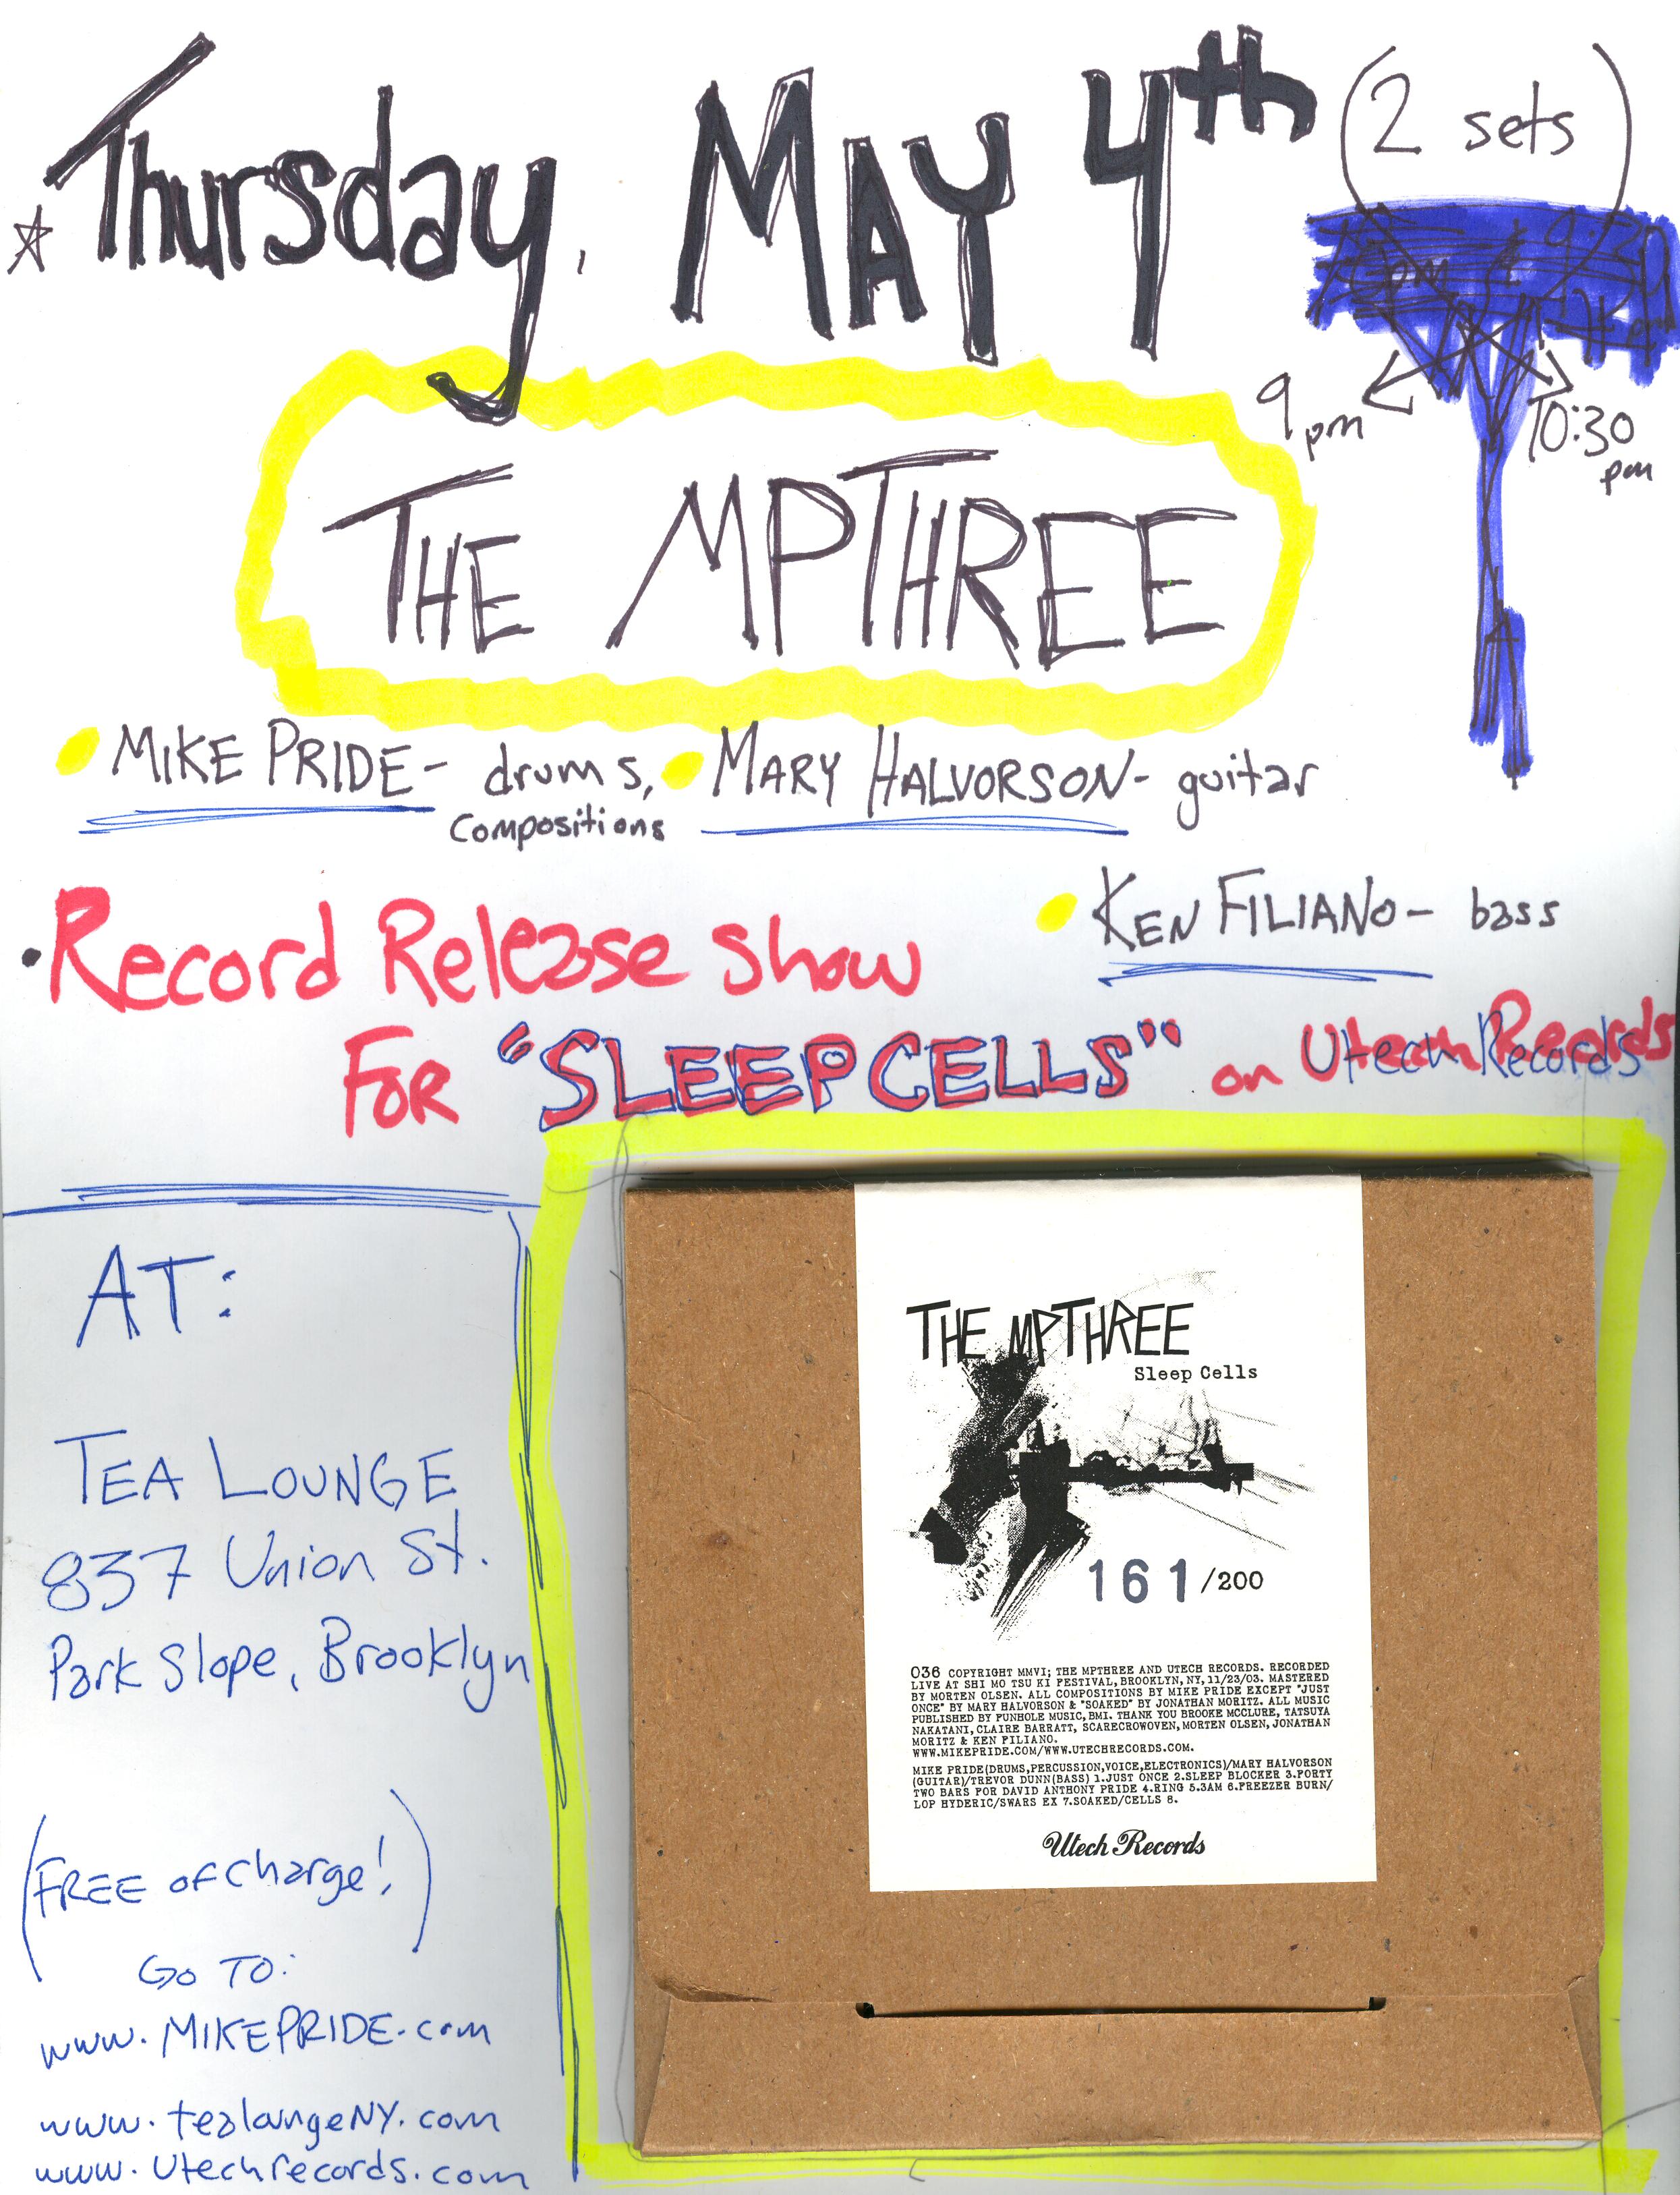 Thursday, MAY 4th (2 sets)
9 pm
10:30 pm
THE MPTHREE
MIKE PRIDE - drums, MARY HALVORSON - guitar
compositions
KEN FILIANO - bass
Record Release show
FOR "SLEEP CELLS" on Utech Records
AT:
TEA LOUNGE
837 Union St.
Park Slope, Brooklyn
(FREE of charge!)
GO TO:
www.MIKEPRIDE.com
www.tealoungeNY.com
www.Utechrecords.com
THE MPTHREE
Sleep Cells
161/200
036 COPYRIGHT MMVI; THE MPTHREE AND UTECH RECORDS. RECORDED
LIVE AT SHI MO TSU KI FESTIVAL, BROOKLYN, NY, 11/23/03. MASTERED
BY MORTEN OLSEN. ALL COMPOSITIONS BY MIKE PRIDE EXCEPT "JUST
ONCE" BY MARY HALVORSON & "SOAKED" BY JONATHAN MORITZ. ALL MUSIC
PUBLISHED BY FUNHOLE MUSIC, BMI. THANK YOU BROOKE MCCLURE, TATSUYA
NAKATANI, CLAIRE BARRATT, SCARECROWOVEN, MORTEN OLSEN, JONATHAN
MORITZ & KEN FILIANO.
WWW.MIKEPRIDE.COM/WWW.UTECHRECORDS.COM.
MIKE PRIDE(DRUMS,PERCUSSION,VOICE,ELECTRONICS)/MARY HALVORSON
(GUITAR)/TREVOR DUNN(BASS) 1.JUST ONCE 2.SLEEP BLOCKER 3.FORTY
TWO BARS FOR DAVID ANTHONY PRIDE 4.RING 5.3AM 6.FREEZER BURN/
LOP HYDERIC/SWARS EX 7.SOAKED/CELLS 8.
Utech Records